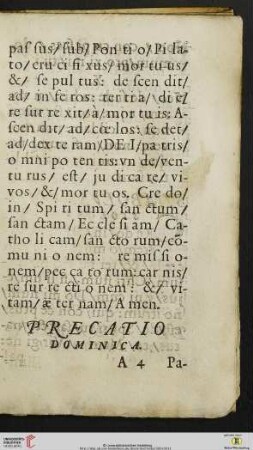 pas sus/ sub/ Pon ti o/ Pi la/
to/ cru ci fi xus/ mor tu us/
&/ se pul tus: de scen dit/
ad/ in fe ros: ter ti a/ di e/
re sur re xit/ à/ mor tu is: A-
scen dit/ ad/ cœ los: se det/
ad/ dex te ram/ DE I/ pa tris/
o mni po ten tis: vn de/ ven-
tu rus/ est/ ju di ca re/ vi-
vos/ &/ mor tu os. Cre do/
in/ Spi ri tum/ san ctum/
san ctam/ Ec cle si am/ Ca-
tho li cam/ san cto rum/ cō-
mu ni o nem: re mis si o-
nem/ pec ca to rum: car nis/
re sur re cti o nem: &/ vi-
tam/ æ ter nam/ A men.
PRECATIO
DOMINICA.
A 4 Pa-